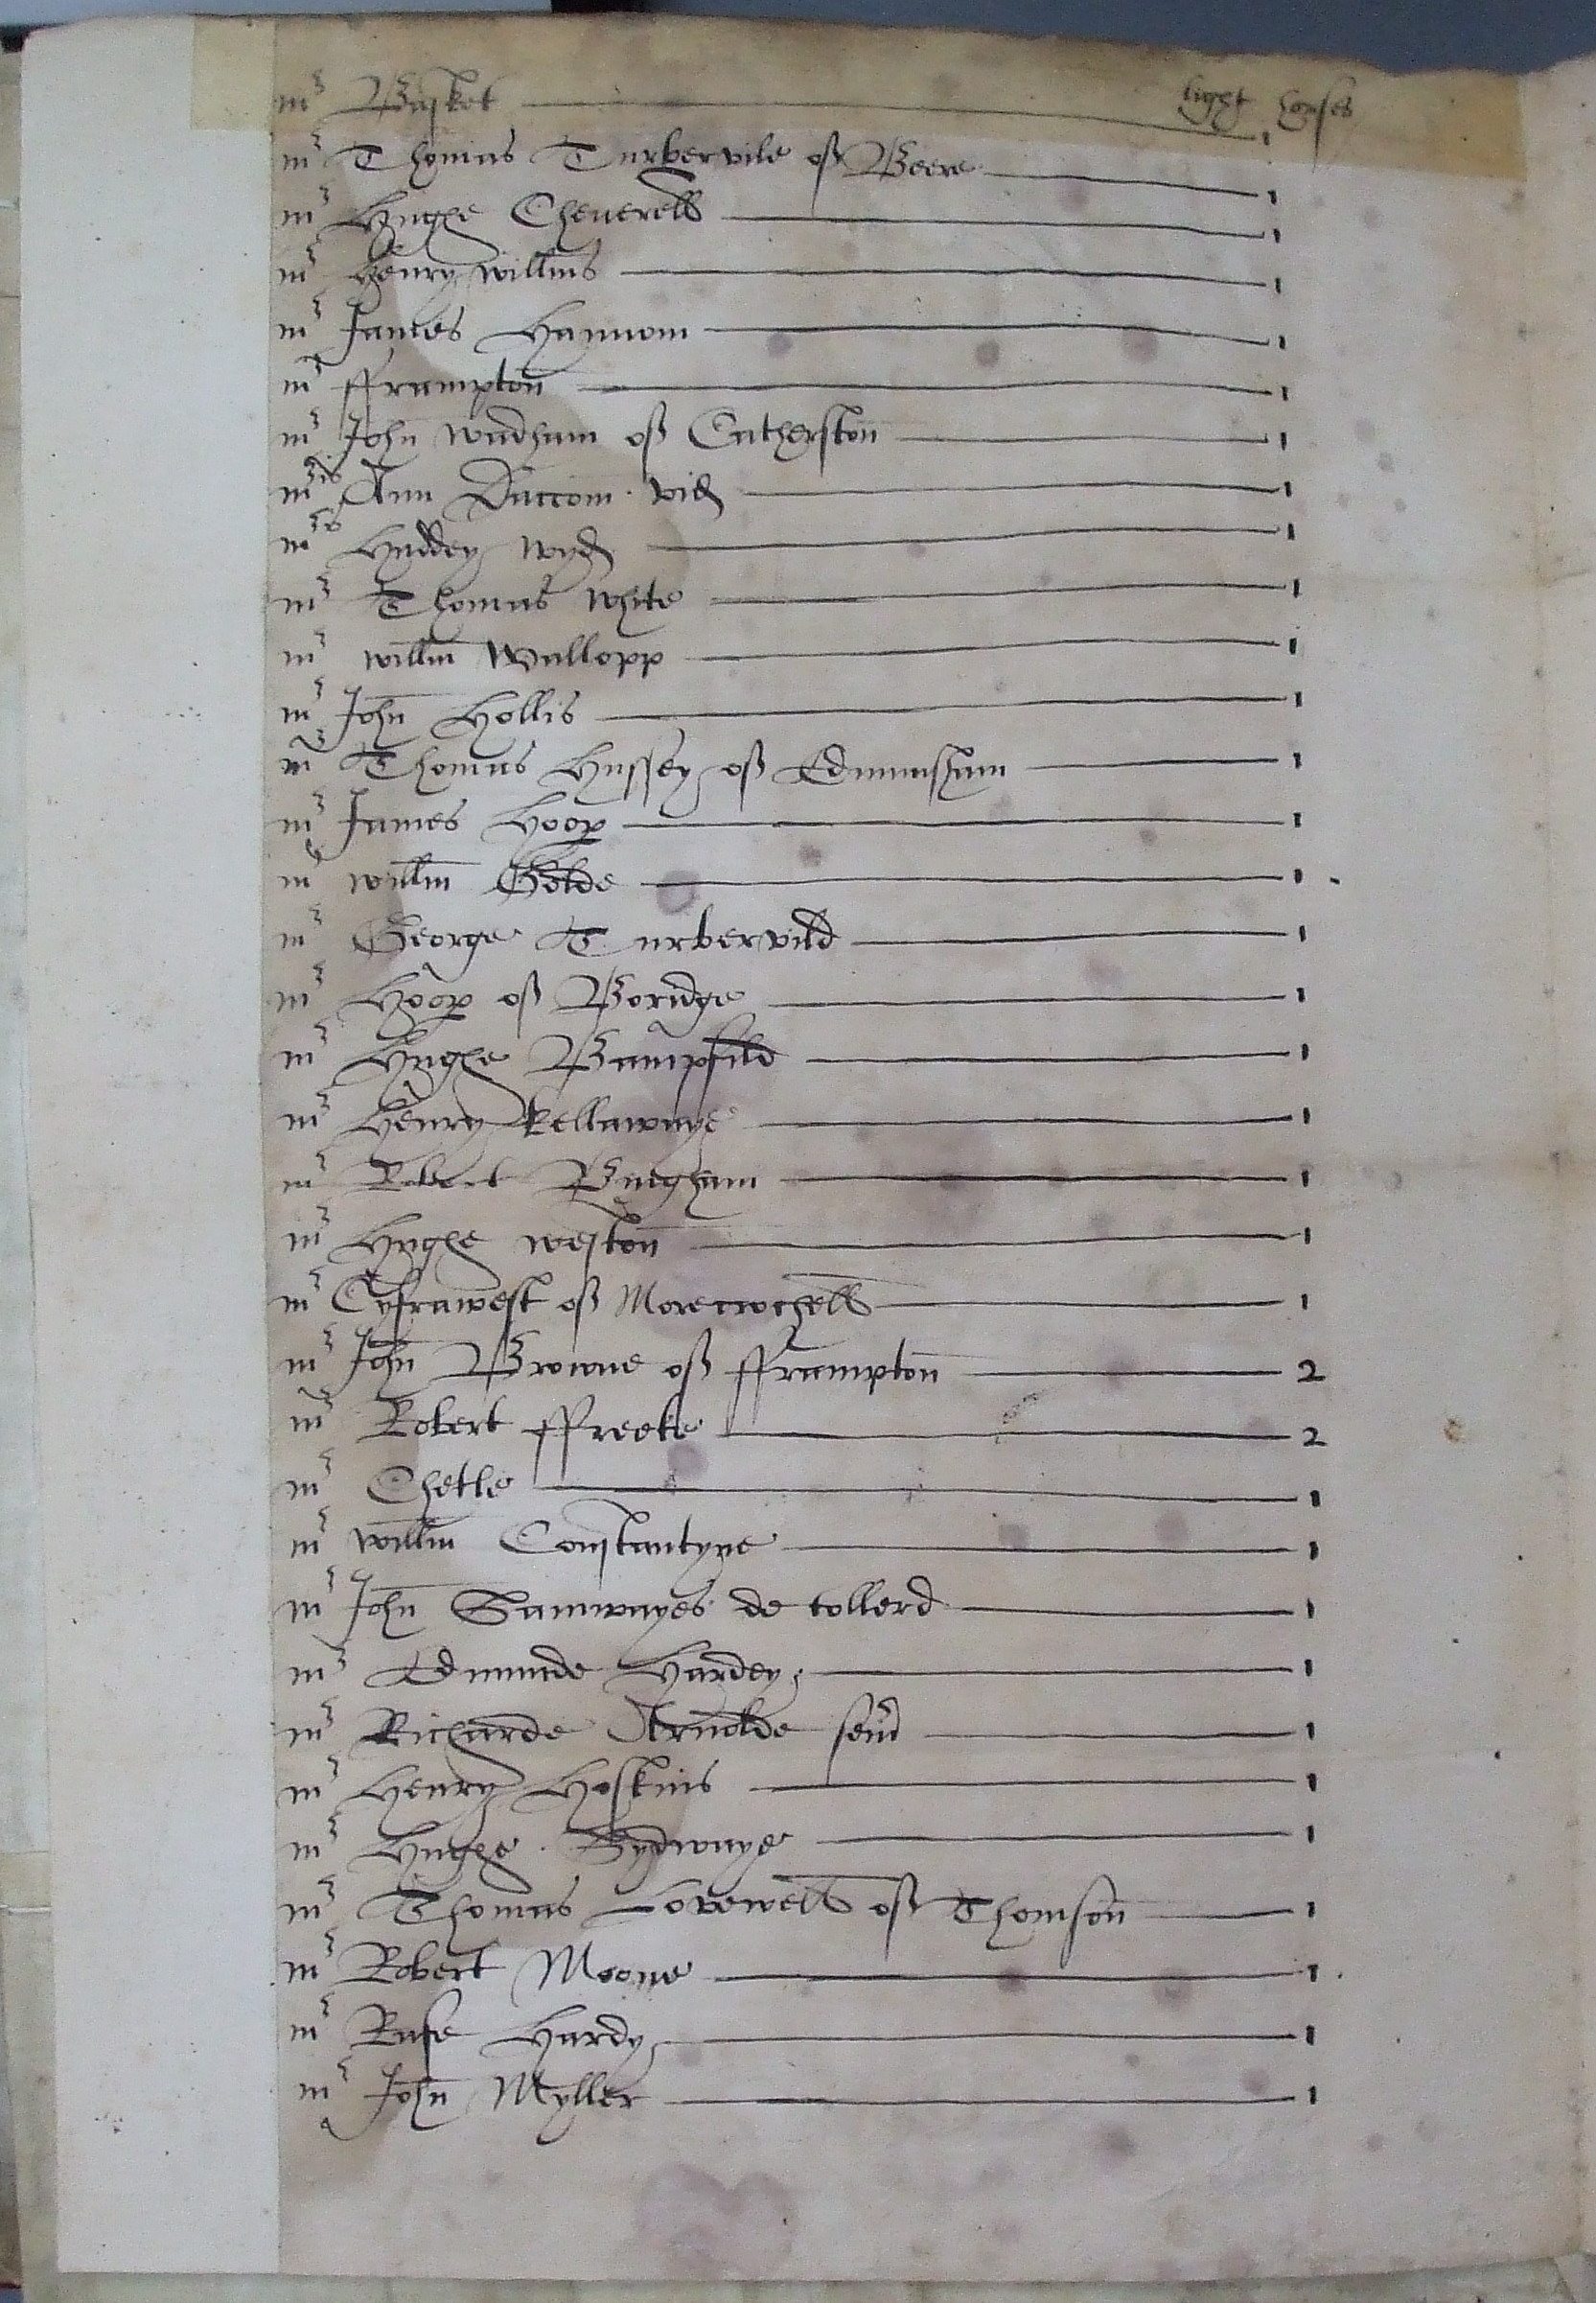 mr Busket light horses 1
mr Thomas Turbervile of Beere 1
mr Hughe Cheverell 1
mr Henry Willms 1
mr James Hannom 1
mr fframpton 1
mr John Wadham of Catherston 1
mris Ann Duccom vid 1
mrs Huddey wyd 1
mr Thomas White 1
mr willm Wallopp 1
mr John Hollis 1
mr Thomas Hussey of Edmunsham 1
mr James Hoop 1
mr willm Golde 1
mr George Turbervild 1
mr Hoop of Boridge 1
mr Hughe Bampfild 1
mr Henry kellawaye 1
mr Robert Bingham 1
mr Hughe weston 1
mr of Morecrochell 1
mr John Browne of fframpton 2
mr Robert ffreeke 2
mr Chetle 1
mr willm Constantyne 1
mr John Samwayes de tollerd 1
mr Edmunde Hardey 1
mr Richarde Arnolde senr 1
mr Henry Hoskins 1
mr Hughe Sydwaye 1
mr Thomas Lovewell of Thomson 1
mr Robert Moone 1
mr Rafe Hardy 1
mr John Myller 1